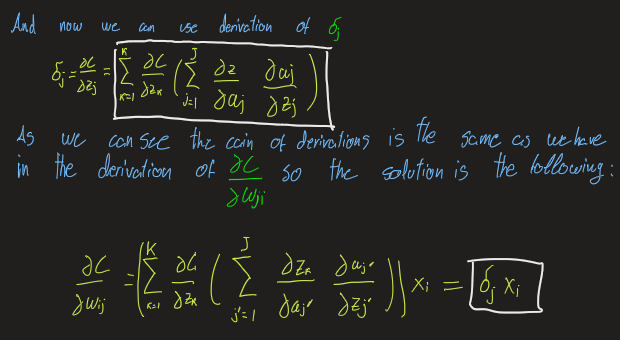 And now we can use derivation of δj
δj = ∂C/∂zj = ∑_{k=1}^{K} ∂C/∂zk ( ∑_{j=1}^{J} ∂z/∂aj ∂aj/∂zj )
As we can see the cain of derivations is the same as we have
in the derivation of ∂C/∂wji so the solution is the following:
∂C/∂wij = ( ∑_{k=1}^{K} ∂C/∂zk ( ∑_{j'=1}^{J} ∂zk/∂aj' ∂aj'/∂zj' ) ) xi = δj xi